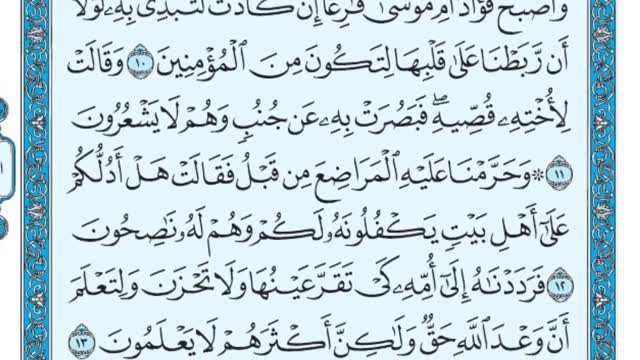 وَأَصْبَحَ فُؤَادُ أُمِّ مُوسَىٰ فَٰرِغًا إِن كَادَتْ لَتُبْدِى بِهِۦ لَوْلَآ
أَن رَّبَطْنَا عَلَىٰ قَلْبِهَا لِتَكُونَ مِنَ ٱلْمُؤْمِنِينَ ١٠ وَقَالَتْ
لِأُخْتِهِۦ قُصِّيهِ ۖ فَبَصُرَتْ بِهِۦ عَن جُنُبٍ وَهُمْ لَا يَشْعُرُونَ
١١ ۞ وَحَرَّمْنَا عَلَيْهِ ٱلْمَرَاضِعَ مِن قَبْلُ فَقَالَتْ هَلْ أَدُلُّكُمْ
عَلَىٰٓ أَهْلِ بَيْتٍ يَكْفُلُونَهُۥ لَكُمْ وَهُمْ لَهُۥ نَٰصِحُونَ
١٢ فَرَدَدْنَٰهُ إِلَىٰٓ أُمِّهِۦ كَىْ تَقَرَّ عَيْنُهَا وَلَا تَحْزَنَ وَلِتَعْلَمَ
أَنَّ وَعْدَ ٱللَّهِ حَقٌّ وَلَٰكِنَّ أَكْثَرَهُمْ لَا يَعْلَمُونَ ١٣